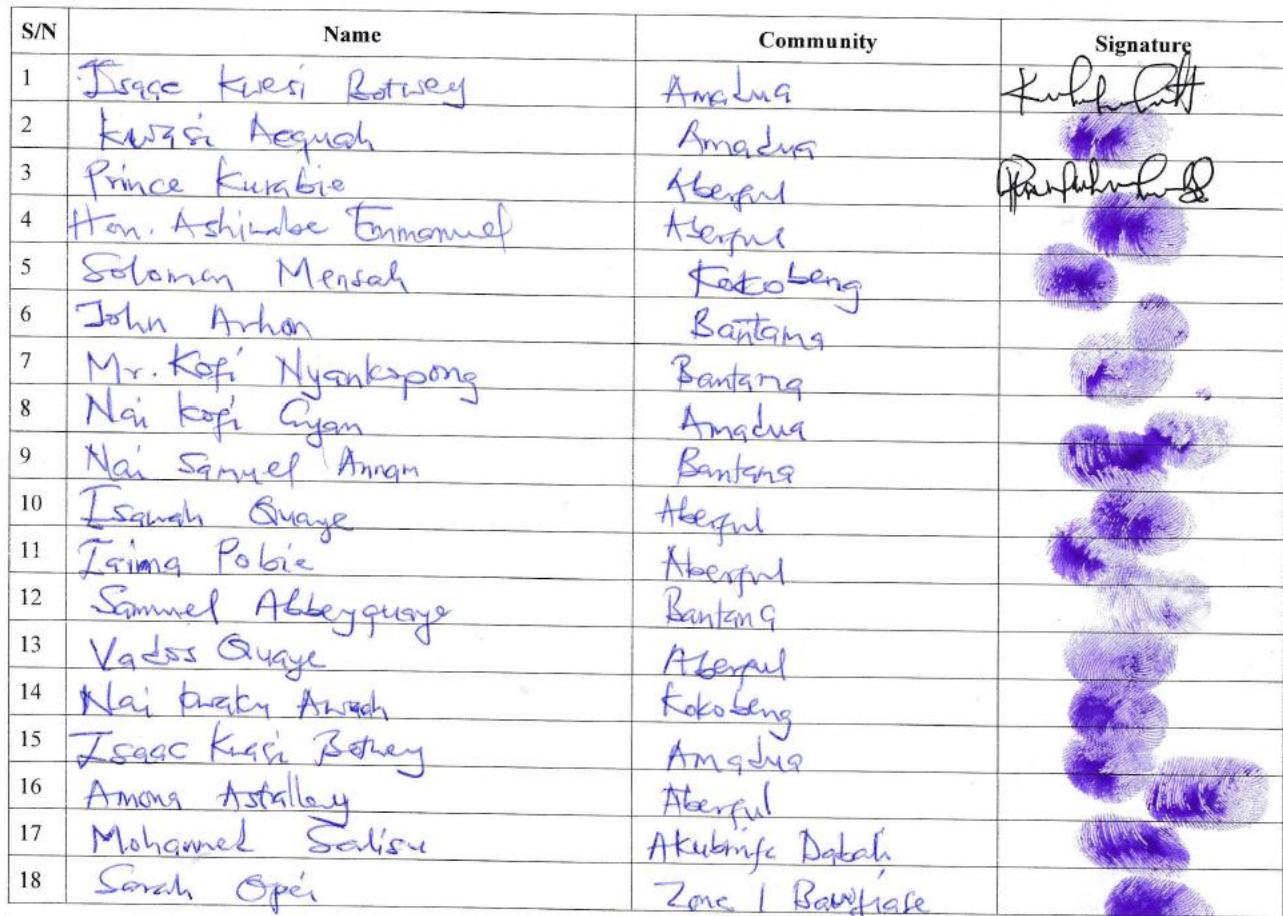 S/N Name Community Signature
1 Isaac Kwesi Botwey Amadua
2 Kwasi Acquah Amadua
3 Prince Kurabie Aberful
4 Hon. Ashinabe Emmanuel Aberful
5 Solomon Mensah Kokobeng
6 John Arhon Bantama
7 Mr. Kofi Nyankopong Bantama
8 Nai Kofi Gyan Amadua
9 Nai Samuel Annan Bantama
10 Quaye Aberful
11 Pobie Aberful
12 Sammuel Abbeyquaye Bantama
13 Quaye Aberful
14 Nai Kwaku Awuah Kokobeng
15 Isaac Kwasi Botwey Amadua
16 Amona Aberful
17 Mohammed Salisu Dabah
18 Sarah Opei Zone 1